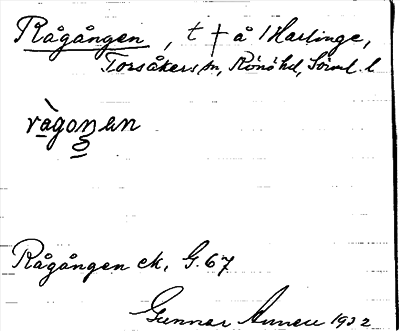 Rågången, t † å 1 Harlinge,
Torsåkers sn, Rönö hd, Sörml. l
rågoŋen
Rågången ek, G. 67
Gunnar 1932